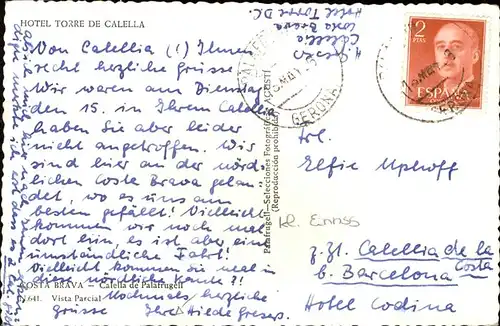 HOTEL TORRE DE CALELLA
Von Calellia (!) Ihnen
recht herzliche Grüsse.
Wir waren am Dienstag
den 15. in Ihrem Calellia
haben Sie aber leider
nicht angetroffen. Wir
sind hier an der nörd-
lichen Costa Brava gelan-
det, wo es uns am
besten gefällt! Vielleicht
kommen wir noch mal
dort hin es ist aber eine
umständliche Fahrt!
Vielleicht kommen Sie mal in
diese nördliche Kante?!
Nochmals herzliche
Grüsse Ihre Hilde
COSTA BRAVA — Calella de Palafrugell
641. Vista Parcial
Palafrugell—Selecciones Fotográficas AGUSTI
(Reproducción prohibida)
Calella
Costa Brava
Hotel Torre D.C.
GERONA
2
PTAS
ESPAÑA
Frl.
Elfie Uphoff
z. Zt. Calellia de la
Costa
b. Barcelona
Hotel Codina